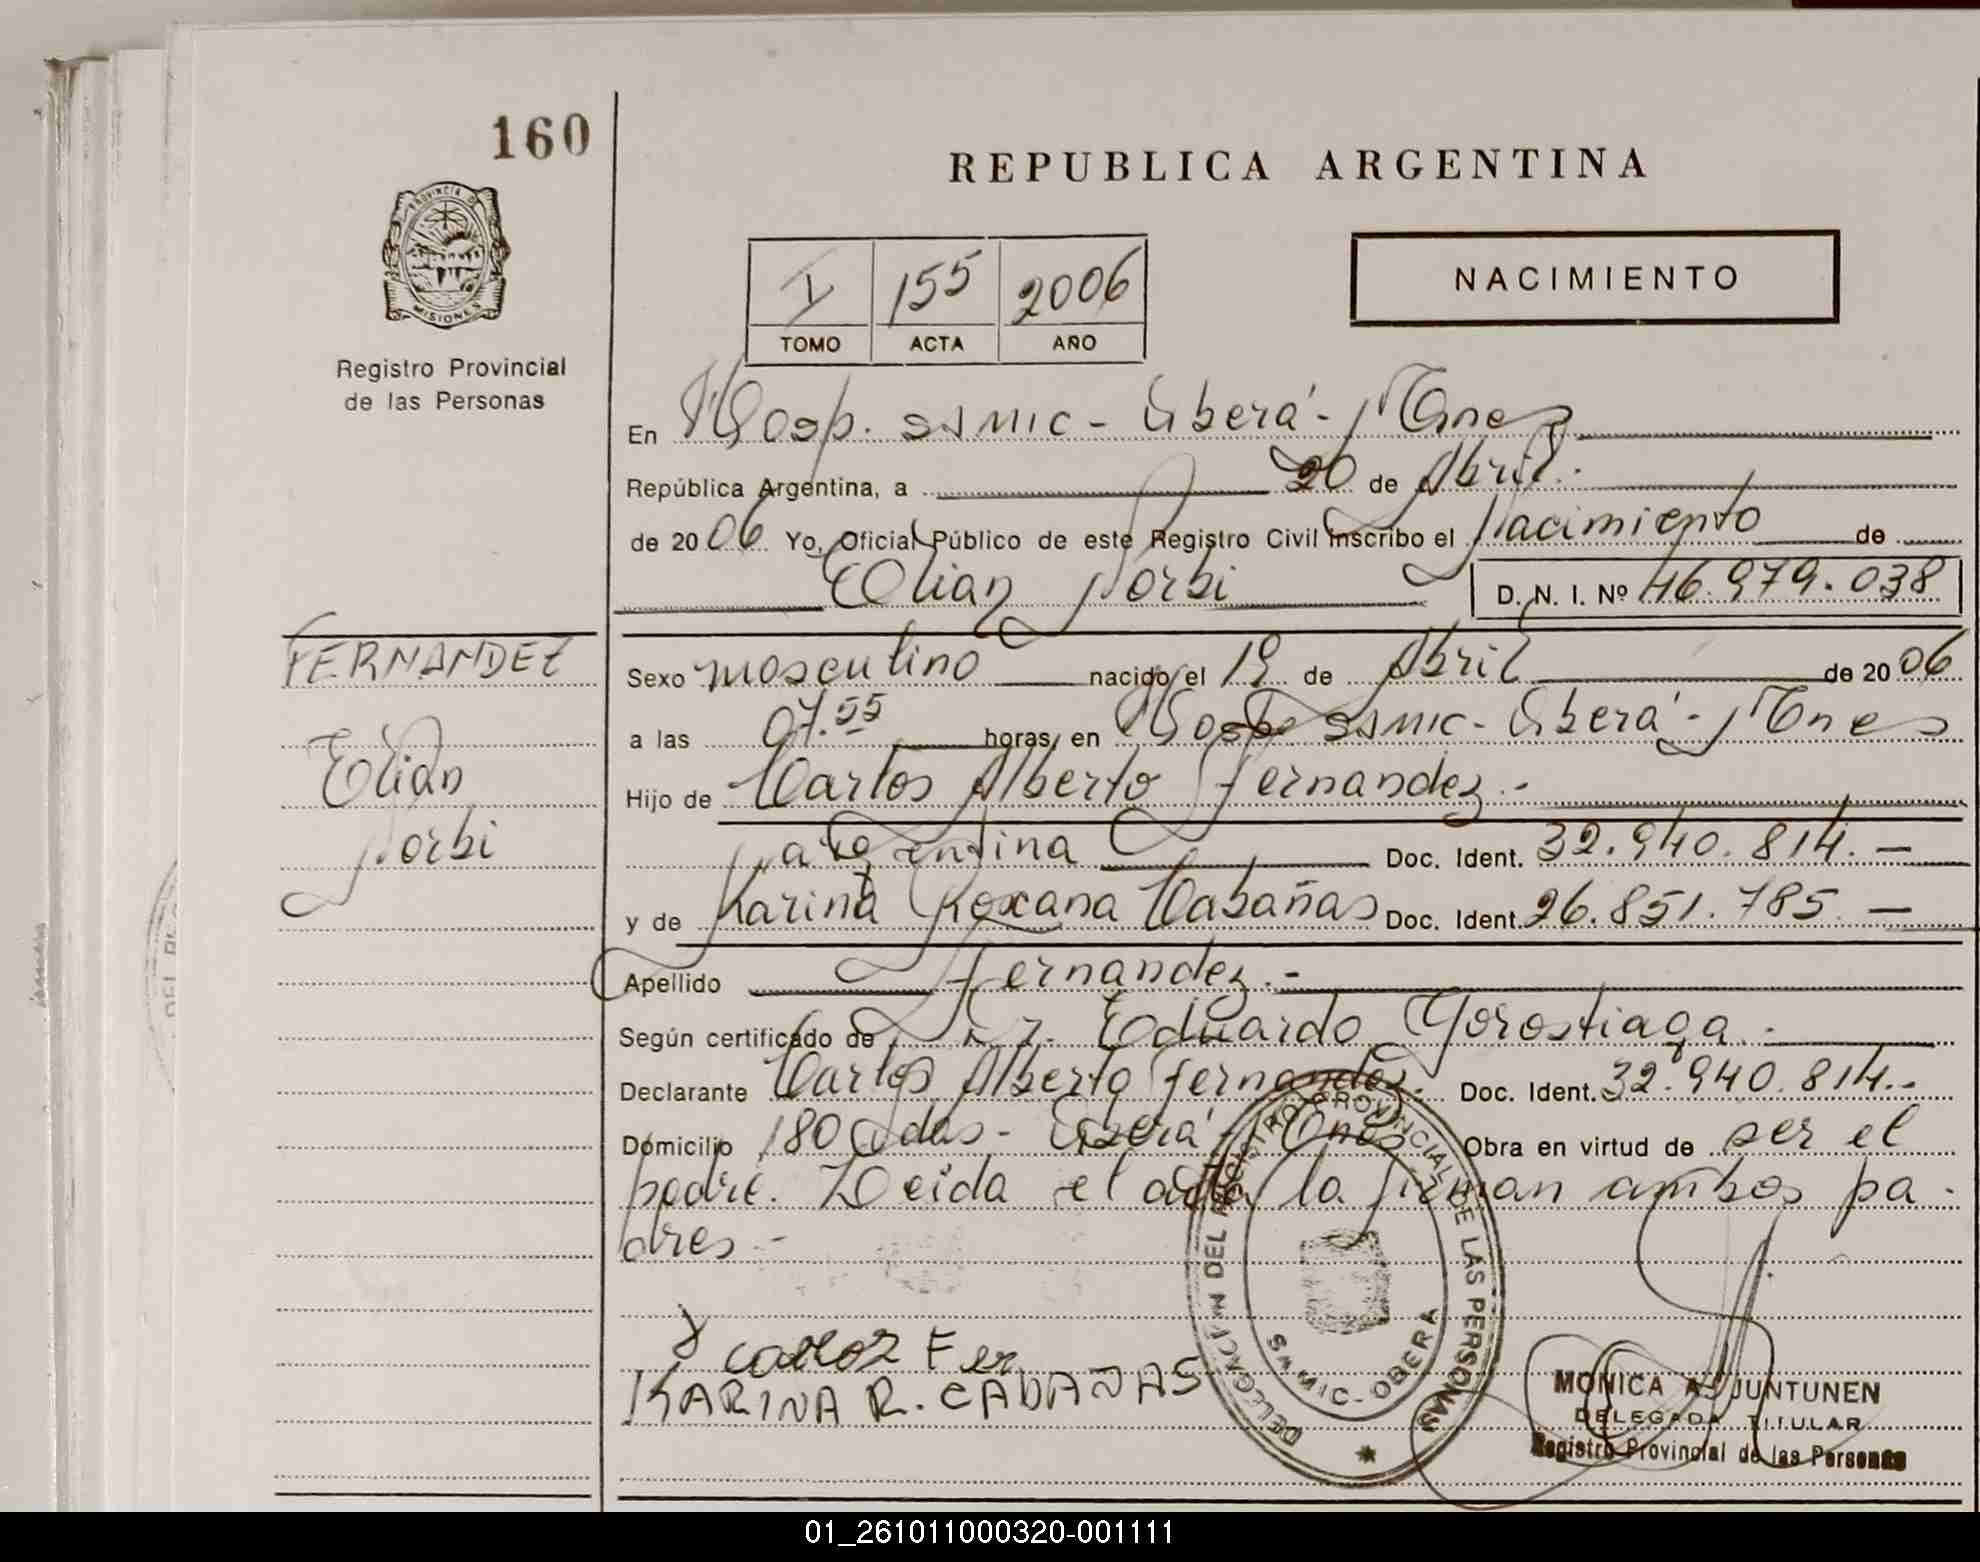 160
REPUBLICA ARGENTINA
PROVINCIA DE
MISIONES
Registro Provincial
de las Personas
I 155 2006
TOMO ACTA AÑO
NACIMIENTO
En Hosp. SAMIC - Oberá - Mnes
República Argentina, a 20 de Abril.
de 2006 Yo, Oficial Público de este Registro Civil inscribo el Nacimiento de
Elian Norbi D. N. I. Nº 46.979.038
FERNANDEZ
Elian
Norbi
Sexo masculino nacido el 19 de Abril de 2006
a las 07.55 horas, en Hosp SAMIC - Oberá - Mnes
Hijo de Carlos Alberto Fernandez.-
argentina Doc. Ident. 32.940.814.-
y de Karina Roxana Cabañas Doc. Ident. 26.851.785.-
Apellido Fernandez.-
Según certificado de Dr. Eduardo Gorostiaga.-
Declarante Carlos Alberto Fernandez. Doc. Ident. 32.940.814.-
Domicilio 180 Vdas - Oberá - Mnes Obra en virtud de ser el
padre. Leida el acta la firman ambos pa-
dres.-
Carlos Fer
KARINA R. CABAÑAS
DELEGACION DEL REGISTRO PROVINCIAL DE LAS PERSONAS
SAMIC - OBERA
MONICA A. JUNTUNEN
DELEGADA TITULAR
Registro Provincial de las Personas
01_261011000320-001111